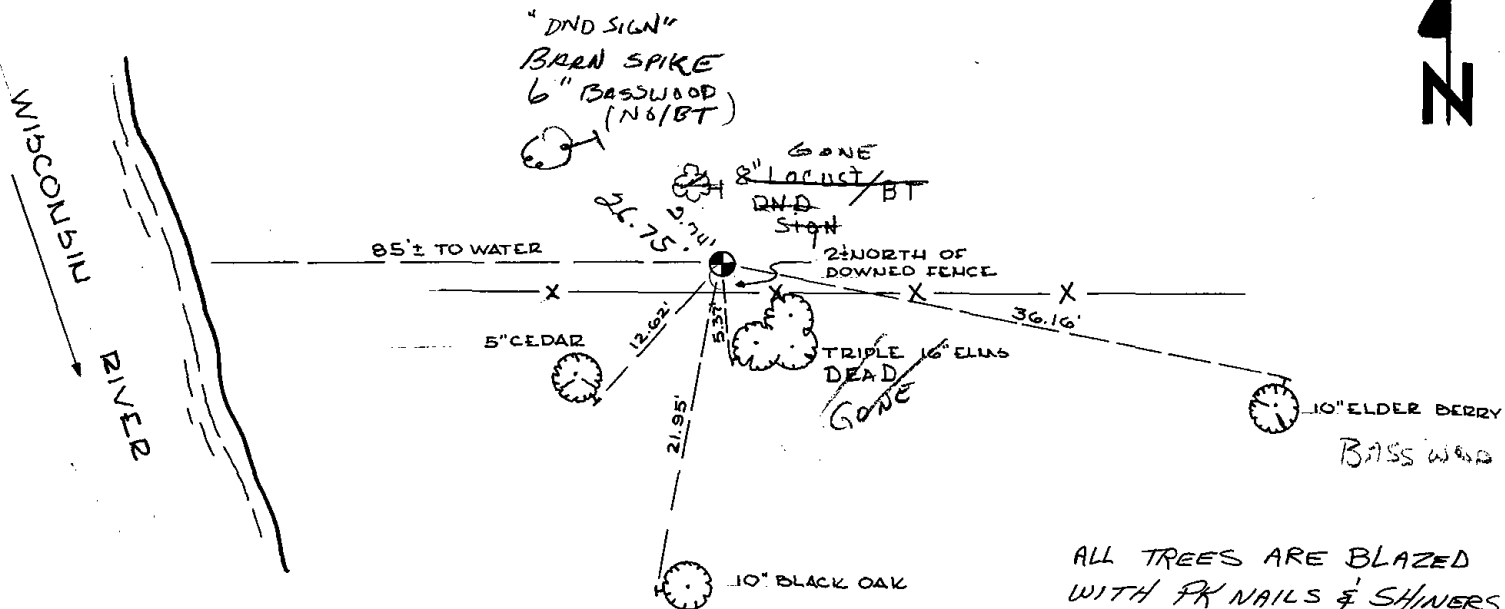 "DND SIGN"
BARN SPIKE
6" BASSWOOD
(NO/BT)
N
WISCONSIN RIVER
GONE
8" LOCUST/BT
DND
SIGN
26.75'
85'± TO WATER
2'± NORTH OF
DOWNED FENCE
X X X X
36.16'
12.62'
5.37'
5" CEDAR
TRIPLE 16" ELMS
DEAD
GONE
21.95'
10" ELDER BERRY
BASSWOOD
10" BLACK OAK
ALL TREES ARE BLAZED
WITH PK NAILS & SHINERS